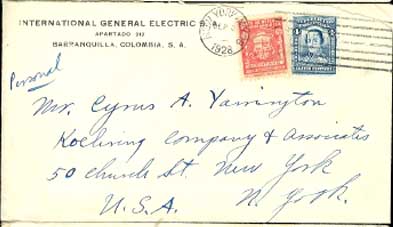 INTERNATIONAL GENERAL ELECTRIC S.
APARTADO 242
BARRANQUILLA, COLOMBIA, S. A.
NEW YORK
SEP
1928
Personal
Mr. Cyrus A. Yarrington
Koehring Company & Associates
50 Church St. New York
U.S.A. N. York.